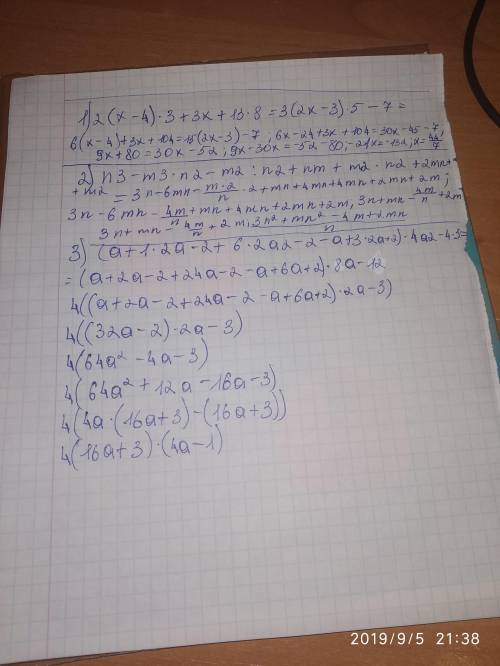 1) 2(x-4)·3+3x+13·8=3(2x-3)·5-7=
6(x-4)+3x+104=15(2x-3)-7; 6x-24+3x+104=30x-45-7,
9x+80=30x-52; 9x-30x=-52-80; -21x=-132; x=44/7
2) n3-m3·n2-m2:n2+nm+m2·n2+2mn+
+m2 =3n-6mn-m·2/n·2+mn+4mn+4mn+2mn+2m;
3n-6mn-4m/n+mn+4mn+2mn+2m, 3n+mn-4m/n+2m
3n+mn-4m/n+2m, 3n²+mn²-4m+2mn/n
3) (a+1·2a-2+6·2a2-2-a+3·2a+2)·4a2-4·3=
=(a+2a-2+24a-2-a+6a+2)·8a-12
4((a+2a-2+24a-2-a+6a+2)·2a-3)
4((32a-2)·2a-3)
4(64a²-4a-3)
4(64a²+12a-16a-3)
4(4a·(16a+3)-(16a+3))
4(16a+3)·(4a-1)
2019/9/5 21:38